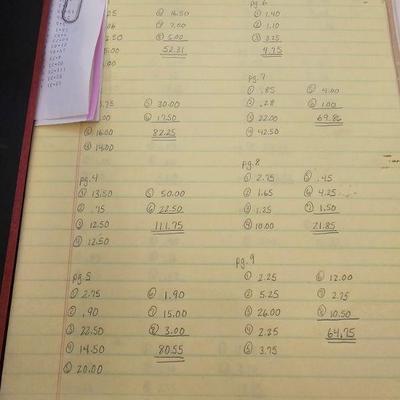 .25
.06
2.50
5.00
.00
16.50
⑦ 7.00
⑧ 5.00
52.31
.75
.00
③ 16.00
④ 14.00
⑤ 30.00
⑥ 17.50
82.25
pg.4
① 13.50
② .75
③ 12.50
④ 12.50
⑤ 50.00
⑥ 22.50
111.75
pg.5
① 2.75
② .90
③ 22.50
④ 14.50
⑤ 20.00
⑥ 1.90
⑦ 15.00
⑧ 3.00
80.55
pg.6
① 1.40
② 1.10
③ 2.25
4.75
pg.7
① .85
② .28
③ 22.00
④ 42.50
⑤ 4.00
⑥ 1.00
pg.8
① 2.75
② 1.65
③ 1.25
④ 10.00
⑤ .45
⑥ 4.25
⑦ 1.50
21.85
pg.9
① 2.25
② 5.25
③ 26.00
④ 2.25
⑤ 3.75
⑥ 12.00
⑦ 2.75
⑧ 10.50
64.75